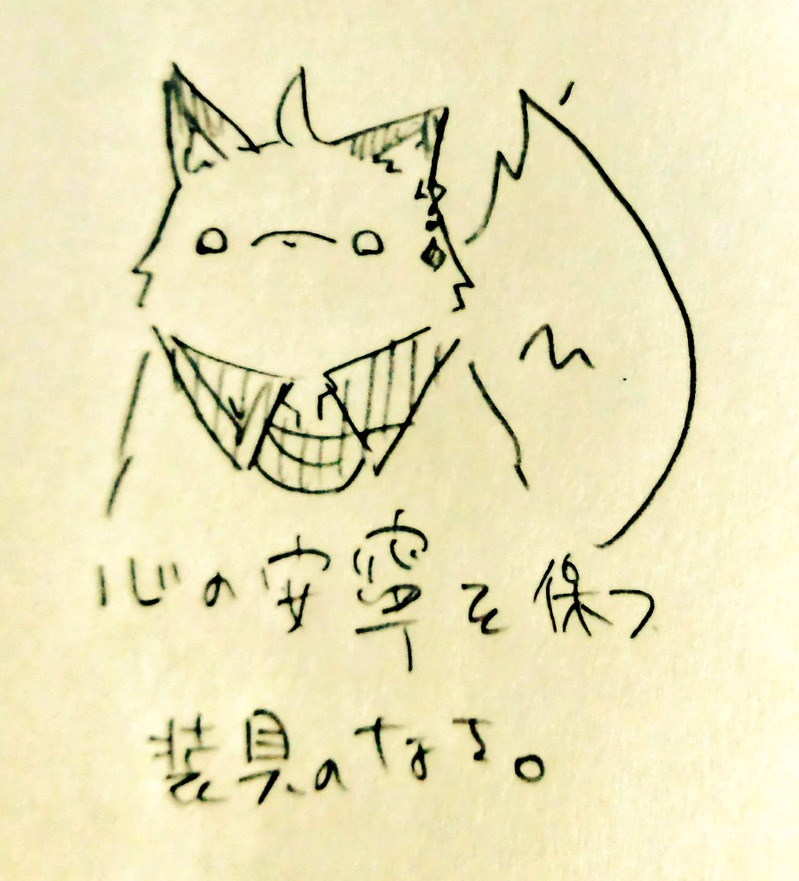 心の安寧を保つ
装具のなさよ。